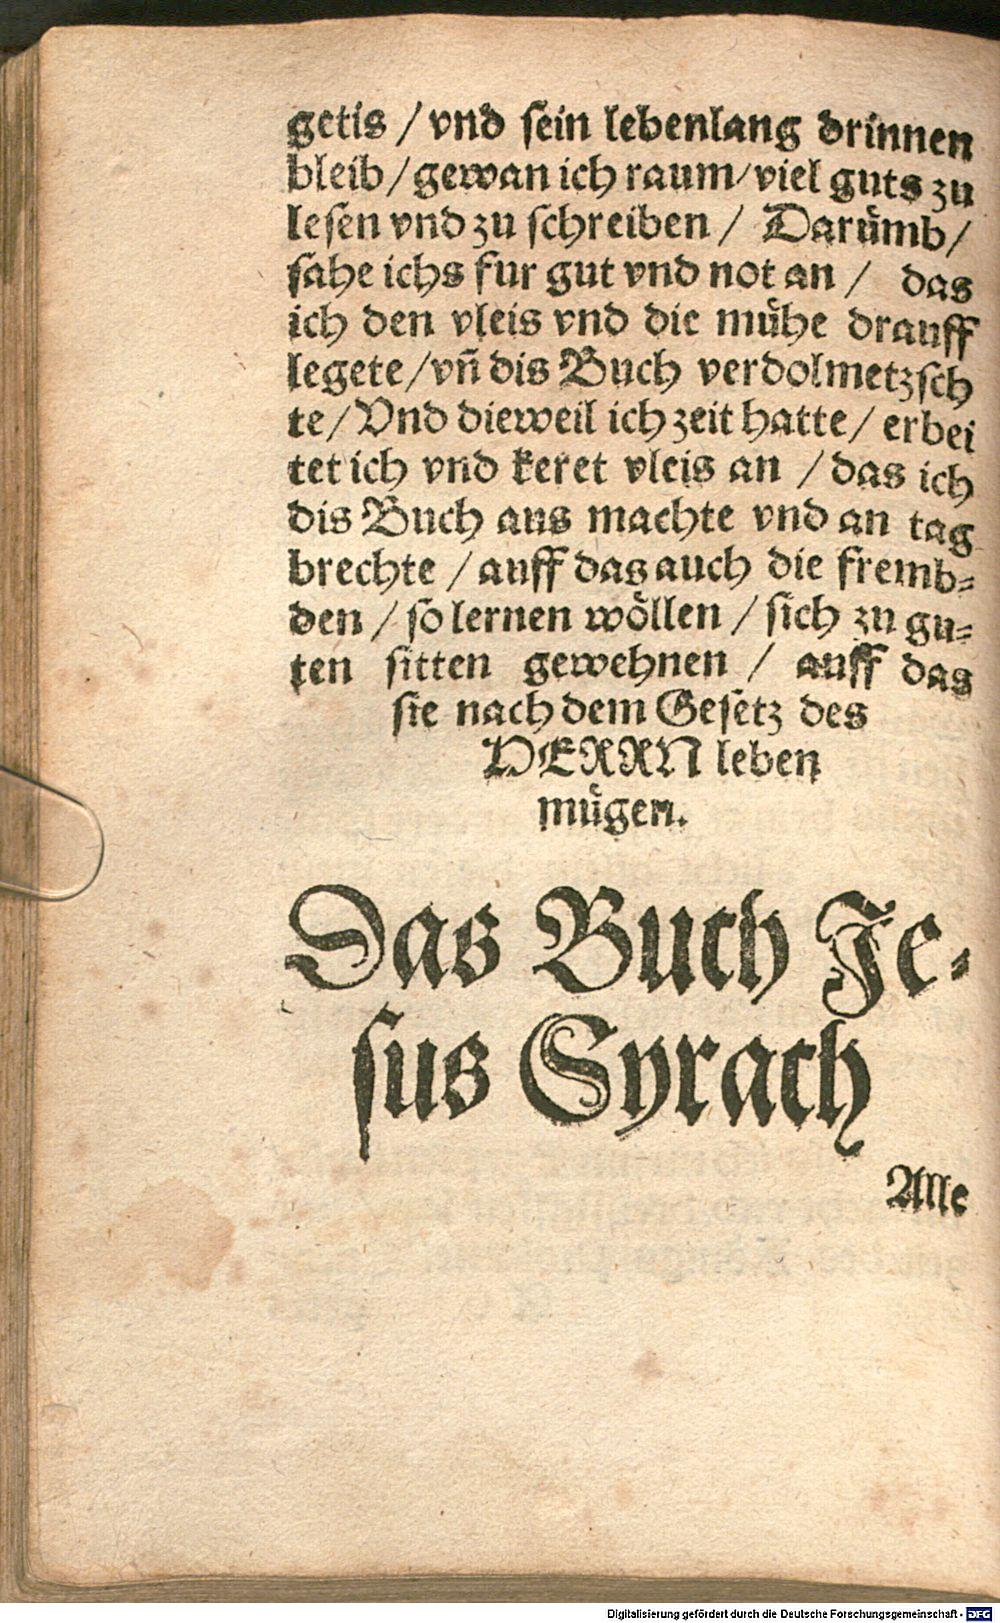 getis / vnd sein lebenlang drinnen
bleib / gewan ich raum / viel guts zu
lesen vnd zu schreiben / Darümb /
sahe ichs fur gut vnd not an / das
ich den vleis vnd die mühe drauff
legete / vñ dis Buch verdolmetzsch
te / Vnd dieweil ich zeit hatte / erbei
tet ich vnd keret vleis an / das ich
dis Buch aus machte vnd an tag
brechte / auff das auch die fremb-
den / so lernen wöllen / sich zu gu-
ten sitten gewehnen / auff das
sie nach dem Gesetz des
HERRN leben
mügen.
Das Buch Je-
sus Syrach
Alle
Digitalisierung gefördert durch die Deutsche Forschungsgemeinschaft - DFG